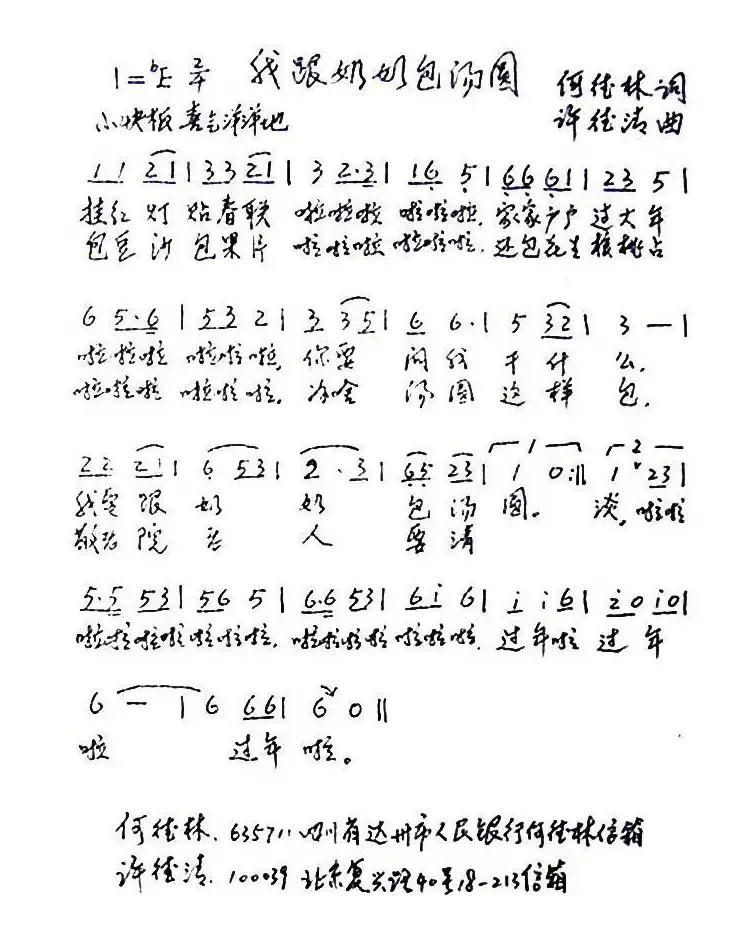 1=♭E 2/4 我跟奶奶包汤圆 何德林词
小快板 喜气洋洋地 许德清曲
1 1 2 1 | 3 3 2 1 | 3 2·3 | 1 6 5 | 6 6 6 1 | 2 3 5 |
挂红灯 贴春联 啦啦啦 啦啦啦, 家家户户 过大年
包豆沙 包果片 啦啦啦 啦啦啦, 还包花生核桃占
6 5·6 | 5 3 2 | 3 3 5 | 6 6· | 5 3 2 | 3 — |
啦啦啦 啦啦啦, 你要 问我 干什么,
啦啦啦 啦啦啦, 汤圆 这样 包,
2 2 2 1 | 6 5 3 | 2 · 3 | 6 5 2 3 | 1 0 :|| 1 2 3 |
我要跟奶奶 包汤圆。 淡, 啦啦
敬老院 老人 要清
5·5 5 3 | 5 6 5 | 6·6 5 3 | 6 i 6 | i i 6 | i 0 i 0 |
啦啦啦啦 啦啦啦, 啦啦啦啦 啦啦啦, 过年啦 过年
6 — | 6 6 6 | 6 0 ||
啦 过年啦。
何德林. 635711 四川省达州市人民银行何德林信箱
许德清. 100039 北京复兴路40号18-213信箱